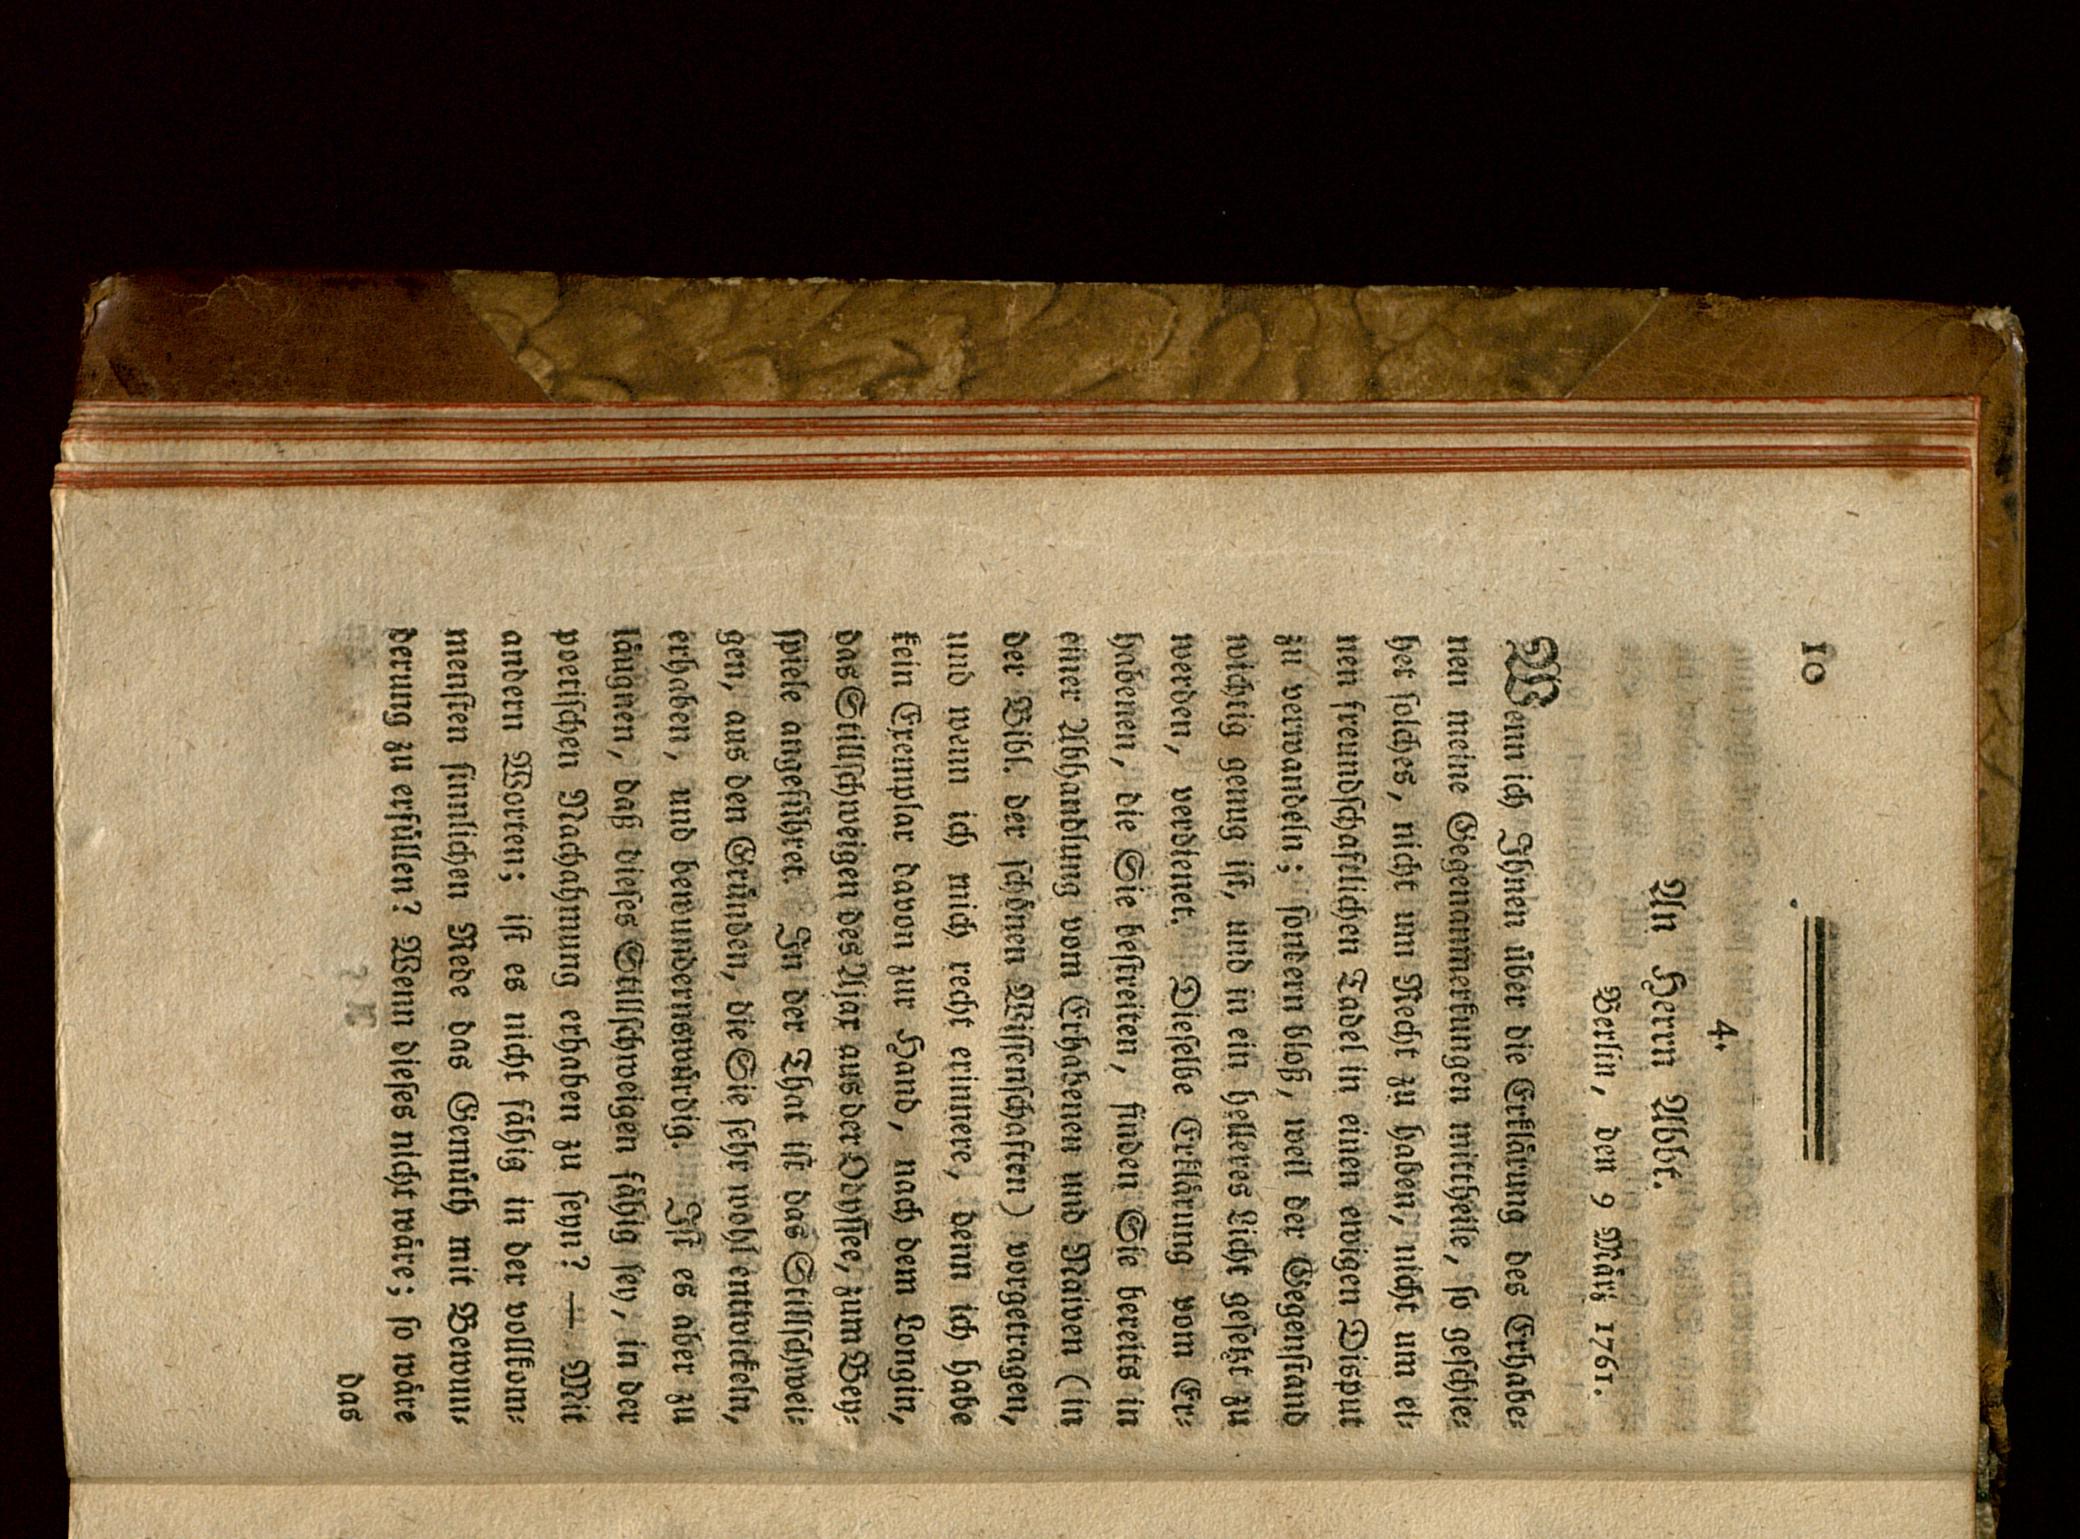 10
4.
An Herrn Abbt.
Berlin, den 9 März 1761.
Wenn ich Ihnen über die Erklärung des Erhabe⸗
nen meine Gegenanmerkungen mittheile, so geschie⸗
het solches, nicht um Recht zu haben, nicht um ei⸗
nen freundschaftlichen Tadel in einen ewigen Disput
zu verwandeln; sondern bloß, weil der Gegenstand
wichtig genug ist, und in ein helleres Licht gesetzt zu
werden, verdienet. Dieselbe Erklärung vom Er⸗
habenen, die Sie bestreiten, finden Sie bereits in
einer Abhandlung vom Erhabenen und Naiven (in
der Bibl. der schönen Wissenschaften) vorgetragen,
und wenn ich mich recht erinnere, denn ich habe
kein Exemplar davon zur Hand, nach dem Longin,
das Stillschweigen des Ajax aus der Odyssee, zum Bey⸗
spiele angeführet. In der That ist das Stillschwei⸗
gen, aus den Gründen, die Sie sehr wohl entwickeln,
erhaben, und bewundernswürdig. Ist es aber zu
läugnen, daß dieses Stillschweigen fähig sey, in der
poetischen Nachahmung erhaben zu seyn? — Mit
andern Worten; ist es nicht fähig in der vollkom⸗
mensten sinnlichen Rede das Gemüth mit Bewun⸗
derung zu erfüllen? Wenn dieses nicht wäre; so wäre
das